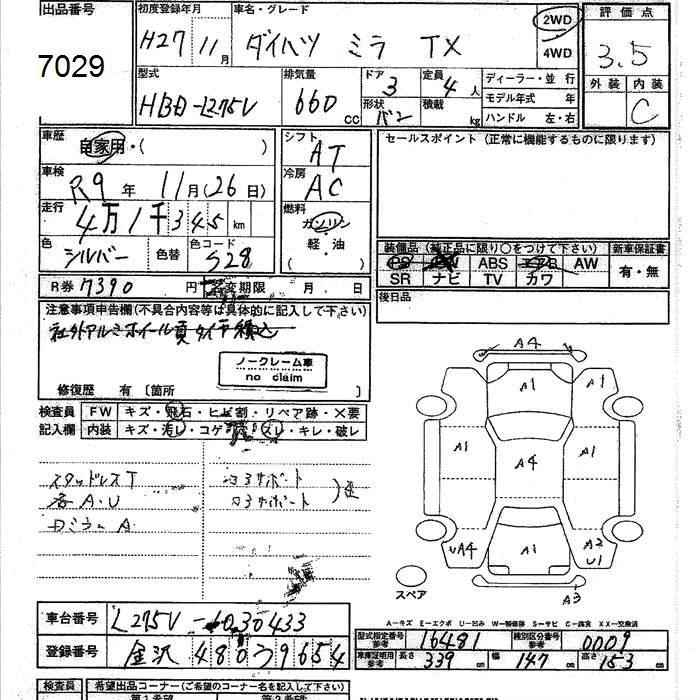 出品番号
7029
初度登録年月
H27 11月
車名・グレード
ダイハツ ミラ TX
2WD
4WD
評価点
3.5
外装 内装
C
型式
HBD-L275V
排気量
660 cc
ドア
3
形状
バン
定員
4人
積載
kg
ディーラー・並 行
モデル年式 年
ハンドル 左・右
車歴
自家用・( )
車検
R9年 11月(26日)
走行
4万1千345km
色
シルバー
色替
色コード
S28
シフト
AT
冷房
AC
燃料
ガソリン
軽・油
( )
セールスポイント(正常に機能するものに限ります)
装備品(純正品に限り○をつけて下さい) 新車保証書
PS PW ABS エアB AW
SR ナビ TV カワ
有・無
後日品
R券 7390円
変更期限 月 日
注意事項申告欄(不具合内容等は具体的に記入して下さい)
社外アルミホイール夏タイヤ積込
ノークレーム車
no claim
修復歴 有〔箇所 〕
検査員
記入欄
FW キズ・飛石・ヒビ割・リペア跡・×要
内装 キズ・汚レ・コゲ・スレ・キレ・破レ
スタッドレスT
A・U
ロミラーA
A4
A1
A1
A1
A4
A1
UA4
A1
A2
U1
A3
スペア
A-キズ E-エクボ U-凹み W-補修跡 S-サビ C-腐食 XX-交換済
車台番号
L275V-1030433
登録番号
金沢 480 ラ 9654
型式指定番号
参考
16481
類別区分番号
参考
0009
車庫証明用
参考
長さ 339cm 幅 147cm 高さ 153cm
検査員
希望出品コーナー(ご希望のコーナー名を記入下さい)
第1希望 第2希望